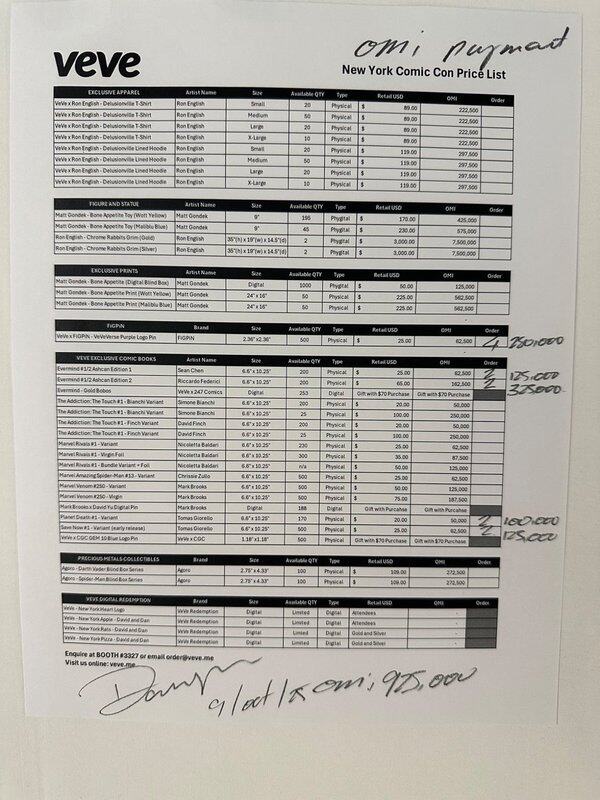 OMI payment
veve
New York Comic Con Price List
EXCLUSIVE APPAREL Artist Name Size Available QTY Type Retail USD OMI Order
VeVe x Ron English - Delusionville T-Shirt Ron English Small 20 Physical $ 89.00 222,500
VeVe x Ron English - Delusionville T-Shirt Ron English Medium 50 Physical $ 89.00 222,500
VeVe x Ron English - Delusionville T-Shirt Ron English Large 20 Physical $ 89.00 222,500
VeVe x Ron English - Delusionville T-Shirt Ron English X-Large 10 Physical $ 89.00 222,500
VeVe x Ron English - Delusionville Lined Hoodie Ron English Small 20 Physical $ 119.00 297,500
VeVe x Ron English - Delusionville Lined Hoodie Ron English Medium 50 Physical $ 119.00 297,500
VeVe x Ron English - Delusionville Lined Hoodie Ron English Large 20 Physical $ 119.00 297,500
VeVe x Ron English - Delusionville Lined Hoodie Ron English X-Large 10 Physical $ 119.00 297,500
FIGURE AND STATUE Artist Name Size Available QTY Type Retail USD OMI Order
Matt Gondek - Bone Appetite Toy (Wott Yellow) Matt Gondek 9" 195 Phygital $ 170.00 425,000
Matt Gondek - Bone Appetite Toy (Maliblu Blue) Matt Gondek 9" 45 Phygital $ 230.00 575,000
Ron English - Chrome Rabbits Grim (Gold) Ron English 35"(h) x 19"(w) x 14.5"(d) 2 Phygital $ 3,000.00 7,500,000
Ron English - Chrome Rabbits Grim (Silver) Ron English 35"(h) x 19"(w) x 14.5"(d) 2 Phygital $ 3,000.00 7,500,000
EXCLUSIVE PRINTS Artist Name Size Available QTY Type Retail USD OMI Order
Matt Gondek - Bone Appetite (Digital Blind Box) Matt Gondek Digital 1000 Phygital $ 50.00 125,000
Matt Gondek - Bone Appetite Print (Wott Yellow) Matt Gondek 24" x 16" 50 Physical $ 225.00 562,500
Matt Gondek - Bone Appetite Print (Maliblu Blue) Matt Gondek 24" x 16" 50 Physical $ 225.00 562,500
FiGPiN Brand Size Available QTY Type Retail USD OMI Order
VeVe x FiGPiN - VeVeVerse Purple Logo Pin FiGPiN 2.36"x2.36" 500 Physical $ 25.00 62,500 4 250,000
VEVE EXCLUSIVE COMIC BOOKS Artist Name Size Available QTY Type Retail USD OMI Order
Evermind #1/2 Ashcan Edition 1 Sean Chen 6.6" x 10.25" 200 Physical $ 25.00 62,500 2 125,000
Evermind #1/2 Ashcan Edition 2 Riccardo Federici 6.6" x 10.25" 200 Physical $ 65.00 162,500 2 325,000
Evermind - Gold Bobos VeVe x 247 Comics Digital 253 Digital Gift with $70 Purchase Gift with $70 Purchase
The Addiction: The Touch #1 - Bianchi Variant Simone Bianchi 6.6" x 10.25" 200 Physical $ 20.00 50,000
The Addiction: The Touch #1 - Bianchi Variant Simone Bianchi 6.6" x 10.25" 25 Physical $ 100.00 250,000
The Addiction: The Touch #1 - Finch Variant David Finch 6.6" x 10.25" 200 Physical $ 20.00 50,000
The Addiction: The Touch #1 - Finch Variant David Finch 6.6" x 10.25" 25 Physical $ 100.00 250,000
Marvel Rivals #1 - Variant Nicoletta Baldari 6.6" x 10.25" 230 Physical $ 25.00 62,500
Marvel Rivals #1 - Virgin Foil Nicoletta Baldari 6.6" x 10.25" 300 Physical $ 35.00 87,500
Marvel Rivals #1 - Bundle Variant + Foil Nicoletta Baldari 6.6" x 10.25" n/a Physical $ 50.00 125,000
Marvel Amazing Spider-Man #13 - Variant Chrissie Zullo 6.6" x 10.25" 500 Physical $ 25.00 62,500
Marvel Venom #250 - Variant Mark Brooks 6.6" x 10.25" 500 Physical $ 50.00 125,000
Marvel Venom #250 - Virgin Mark Brooks 6.6" x 10.25" 500 Physical $ 75.00 187,500
Mark Brooks x David Yu Digital Pin Mark Brooks Digital 188 Digital Gift with Purchase Gift with Purchase
Planet Death #1 - Variant Tomas Giorello 6.6" x 10.25" 170 Physical $ 20.00 50,000 2 100,000
Save Now #1 - Variant (early release) Tomas Giorello 6.6" x 10.25" 500 Physical $ 25.00 62,500 2 125,000
VeVe x CGC GEM 10 Blue Logo Pin VeVe x CGC 1.18"x1.18" 500 Physical Gift with $70 Purchase Gift with $70 Purchase
PRECIOUS METALS COLLECTIBLES Brand Size Available QTY Type Retail USD OMI Order
Agoro - Darth Vader Blind Box Series Agoro 2.75" x 4.33" 100 Physical $ 109.00 272,500
Agoro - Spider-Man Blind Box Series Agoro 2.75" x 4.33" 100 Physical $ 109.00 272,500
VEVE DIGITAL REDEMPTION Brand Size Available QTY Type Retail USD OMI Order
VeVe - New York Heart Logo VeVe Redemption Digital Limited Digital Attendees -
VeVe - New York Apple - David and Dan VeVe Redemption Digital Limited Digital Attendees -
VeVe - New York Rats - David and Dan VeVe Redemption Digital Limited Digital Gold and Silver -
VeVe - New York Pizza - David and Dan VeVe Redemption Digital Limited Digital Gold and Silver -
Enquire at BOOTH #3327 or email order@veve.me
Visit us online: veve.me
9/oct/25 OMI: 925,000